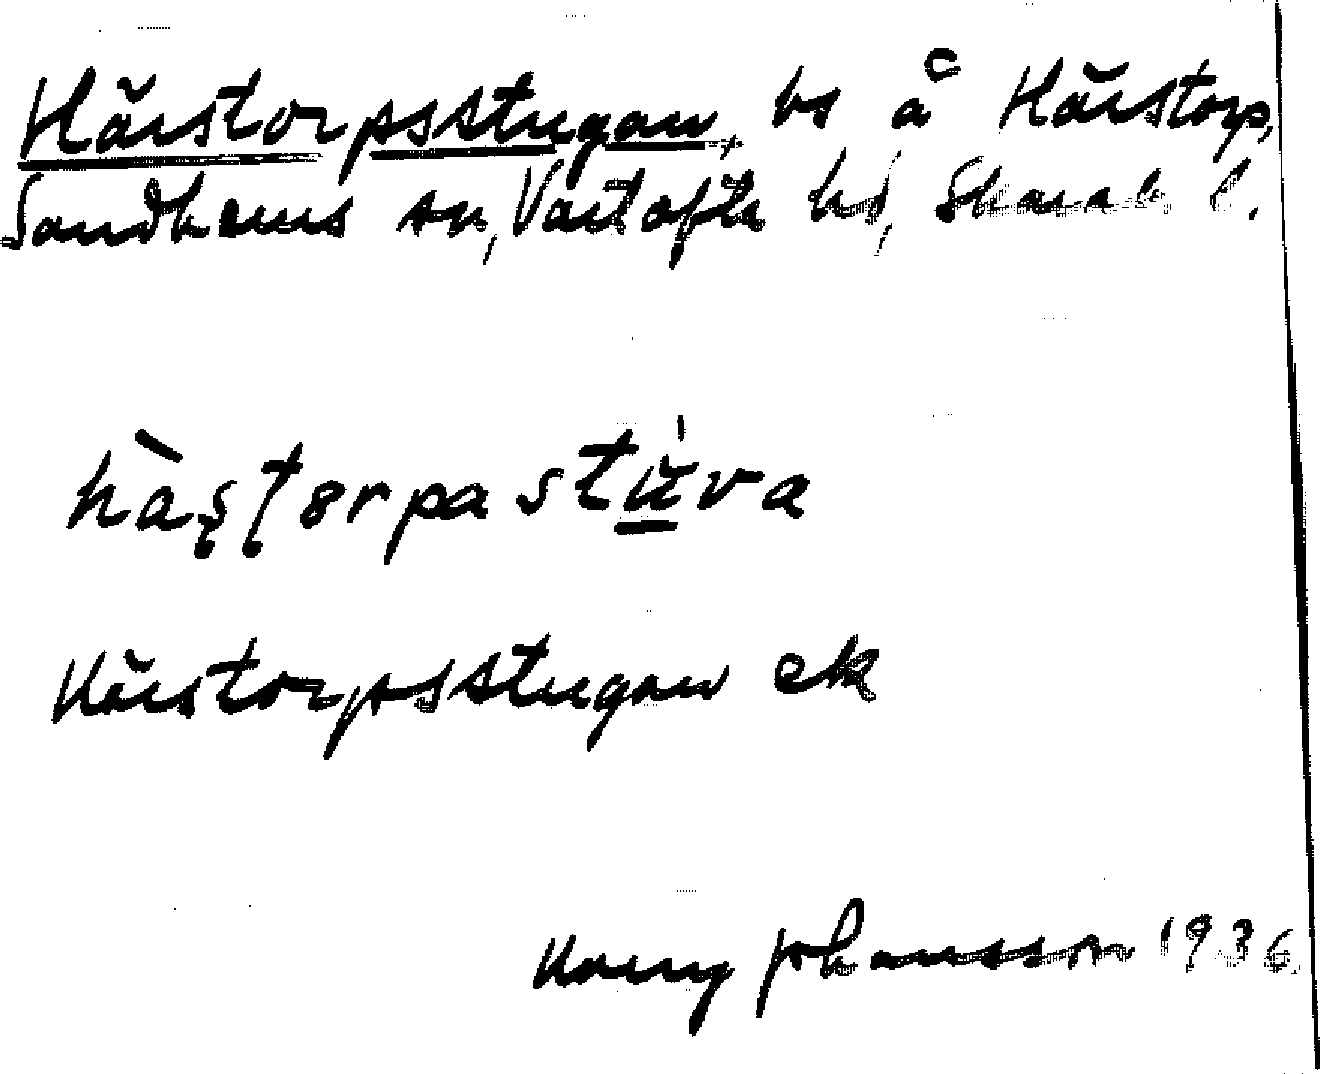 Hårstorpsstugan, bs å Hårstorp,
Sandhems sn, Vartofta hd, Skarab. l.
hàştorpastu̇va
Hårstorpsstugan ek
Harry Johansson 1936